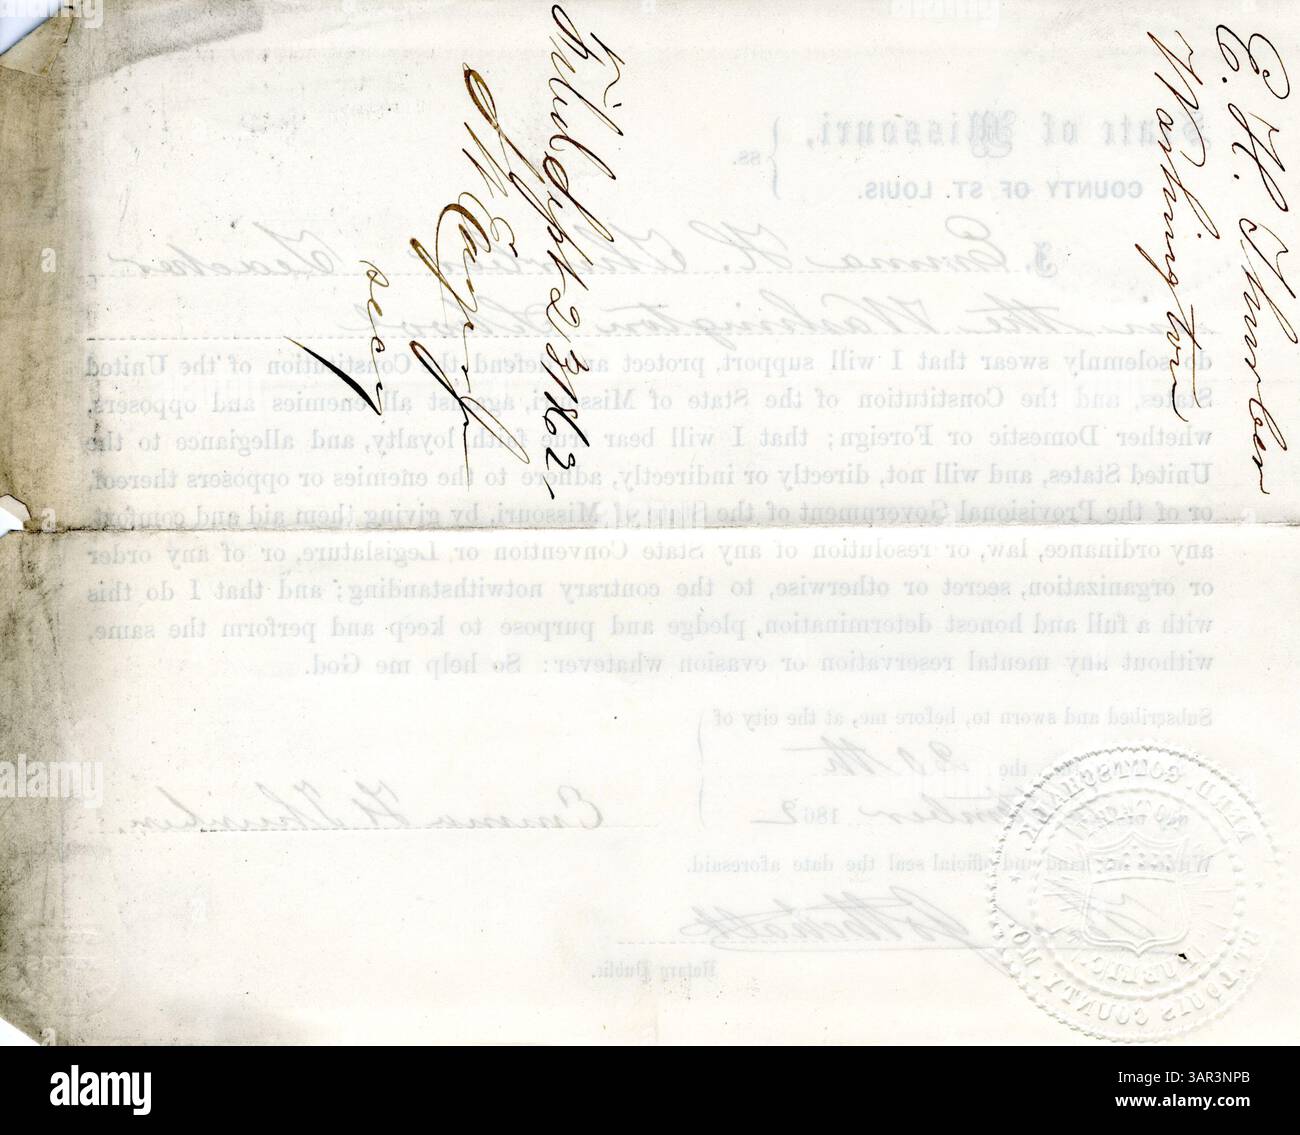 E. H. Thurber
Washington
Filed Sept 23 1862
secy
State of Missouri,
COUNTY OF ST. LOUIS.
ss.
I, Emma H. Thurber Teacher
in the Washington School
do solemnly swear that I will support, protect and defend the Constitution of the United
States, and the Constitution of the State of Missouri, against all enemies and opposers,
whether Domestic or Foreign; that I will bear true faith, loyalty, and allegiance to the
United States, and will not, directly or indirectly, adhere to the enemies or opposers thereof,
or of the Provisional Government of the State of Missouri, by giving them aid and comfort,
any ordinance, law, or resolution of any State Convention or Legislature, or of any order
or organization, secret or otherwise, to the contrary notwithstanding; and that I do this
with a full and honest determination, pledge and purpose to keep and perform the same,
without any mental reservation or evasion whatever: So help me God.
Subscribed and sworn to, before me, at the city of
the
1862
Emma H. Thurber.
Witness my hand and official seal the date aforesaid.
Notary Public.
ST. LOUIS COUNTY, MO.
alamy
Image ID: 3AR3NPB
www.alamy.com